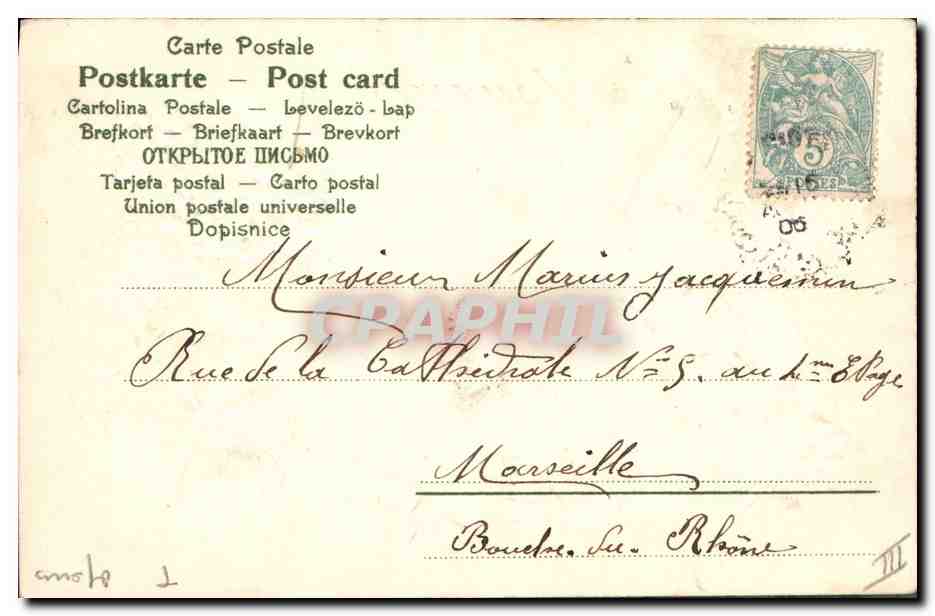 Carte Postale
Postkarte — Post card
Cartolina Postale — Levelezö-Lap
Brefkort — Briefkaart — Brevkort
ОТКРЫТОЕ ПИСЬМО
Tarjeta postal — Carto postal
Union postale universelle
Dopisnice
5
POSTES
15
06
Monsieur Marius Jacquemin
CPAPHIL
Rue de la Cathédrale No 5. au 4me Etage
Marseille
Bouche. du. Rhône
III